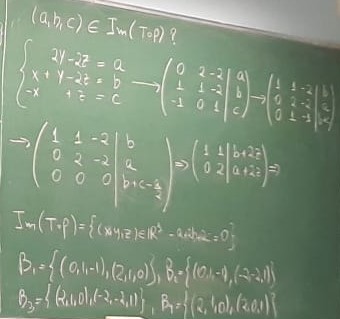 (a,b,c) ∈ Im(T∘p)?
{ 2y-2z = a
x + y -2z = b
-x +z = c
→ ( 0 2 -2 | a
1 1 -2 | b
-1 0 1 | c ) → ( 1 1 -2 | b
0 2 -2 | a
0 1 -1 | )
→ ( 1 1 -2 | b
0 2 -2 | a
0 0 0 | b+c-a/2 ) ⇒ ( 1 1 | b+2z
0 2 | a+2z ) ⇒
Im(T∘p) = {(x,y,z) ∈ ℝ³ =0}
B₁ = {(0,1,-1),(2,1,0)}, B₂ = {(0,1,-1),(-2,-2,1)}
B₃ = {(2,1,0),(-2,-2,1)}, {(2,1,0),(2,0,1)}